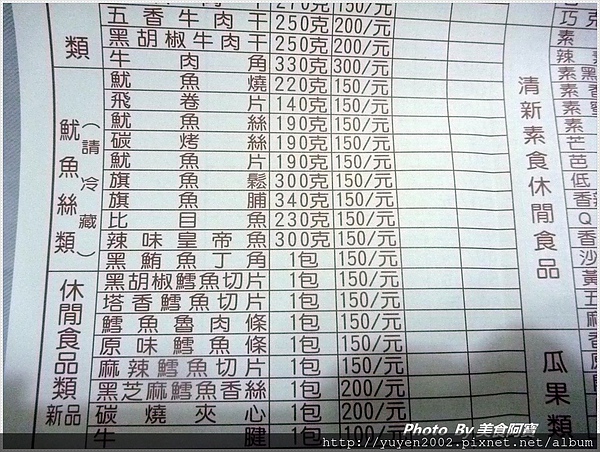 五香牛肉干 250克 200/元
黑胡椒牛肉干 250克 200/元
牛肉角 330克 300/元
魷魚燒 220克 150/元
飛卷片 140克 150/元
魷魚絲 190克 150/元
碳烤絲 190克 150/元
魷魚片 190克 150/元
旗魚鬆 300克 150/元
旗魚脯 340克 150/元
比目魚 230克 150/元
辣味皇帝魚 300克 150/元
黑鮪魚丁角 1包 150/元
黑胡椒鱈魚切片 1包 150/元
塔香鱈魚切片 1包 150/元
鱈魚魯肉條 1包 150/元
原味鱈魚條 1包 150/元
麻辣鱈魚切片 1包 150/元
黑芝麻鱈魚香絲 1包 200/元
碳燒夾心 1包 200/元
牛腱 1包 100/元
類
魷魚絲類
(請冷藏)
休閒食品類
新品
清新素食休閒食品
瓜果類
Photo By 美食阿寶
http://yuyen2002.pixnet.net/album